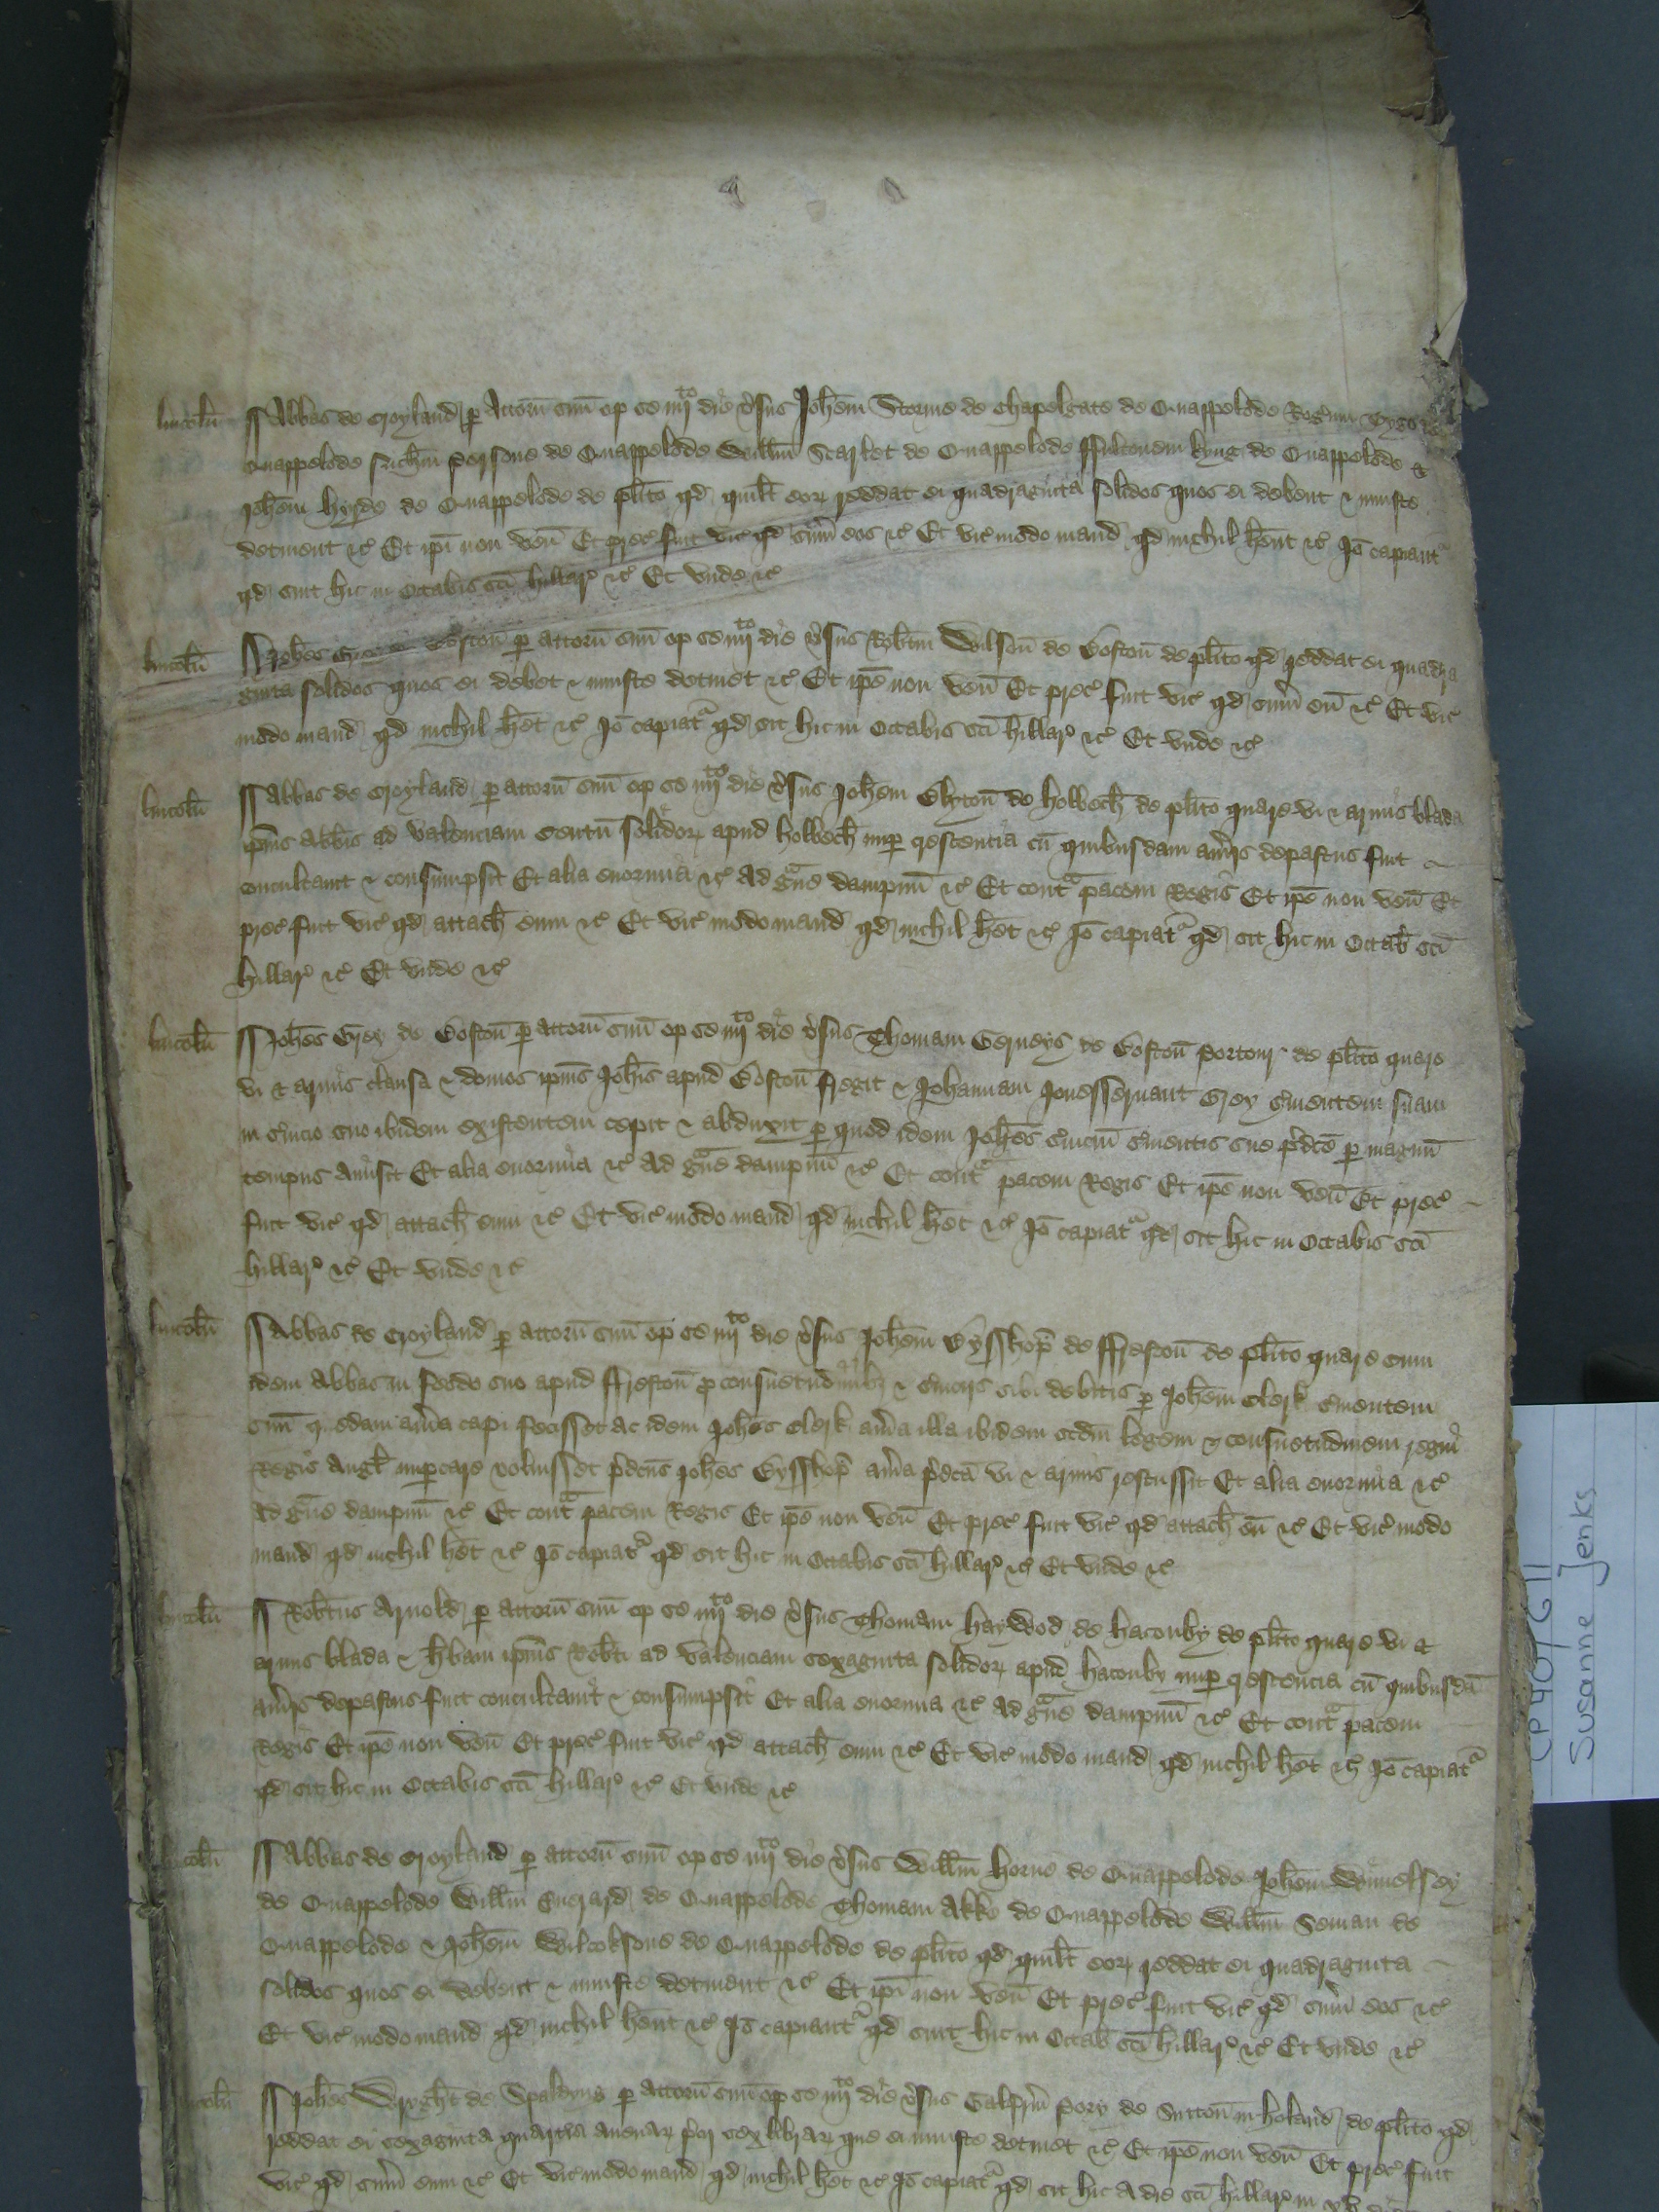 lincoln̄ Abbas de Croyland p attorn̄ suū op se iiijto die v̓sus Joħem Storme de Chapelgate de Quappelode Rog̓um
Quappelode Persone de Quappelode Willm̄ Scarlet de Quappelode ffultonem kyng de Quappelode &
Joħem hyrde de Quappelode de pl̄ito qd quilt̄ eoꝝ reddat ei quadraginta solidos quos ei debent & iniuste
detinent &c Et ip̄i non ven̄ Et prec̓ fuit vic̓ qd sum̄ eos &c Et vic̓ modo mand qd nichil hēnt &c Jō capiantr
qd sint hic in Octabis sc̄i hillar̓ &c Et vnde &c
lincoln̄ Joħes Boston̄ p attorn̄ suū op se iiijto die v̓sus Rob̄tm Wilson̄ de Boston̄ de pl̄ito qd reddat ei quadra
ginta solidos quos ei debet & iniuste detinet &c Et ip̄e non ven̄ Et prec̓ fuit vic̓ qd sum̄ eū &c Et vic̓
modo mand qd nichil hēt &c Jō capiatr qd sit hic in Octabis sc̄i hillar̓ &c Et vnde &c
lincoln̄ Abbas de Croyland p attorn̄ suū op se iiijto die v̓sus Joħem Elyton̄ de holbech̄ de pl̄ito quare vi & armis blada
ip̄ius Abb̄is ad valenciam centū solidoꝝ apud holbech̄ nup crescencia cū quibusdam aīijs depastus fuit
conculcauit & consumpsit Et alia enormia &c Ad gue dampnū &c Et conta pacem Regis Et ip̄e non ven̄ Et
prec̓ fuit vic̓ qd attach̄ eum &c Et vic̓ modo mand qd nichil hēt &c Jō capiatr qd sit hic in Octab̄ sc̄i
hillar̓ &c Et vnde &c
lincoln̄ Joħes Grey de Boston̄ p attorn̄ suū op se iiijto die v̓sus Thomam Gerneys de Boston̄ Portour de pl̄ito quare
vi & armis clausa & domos ip̄ius Joħis apud Boston̄ fregit & Johannam Jonesseruant Grey s̓uientem suam
in s̓uicio suo ibidem existentem cepit & abduxit p quod idem Joħes s̓uiciū s̓uientis sue p̓dc̄e p magnū
tempus amisit Et alia enormia &c Ad gue dampnū &c Et conta pacem Regis Et ip̄e non ven̄ Et prec̓
fuit vic̓ qd attach̄ eum &c Et vic̓ modo mand qd nichil hēt &c Jō capiatr qd sit hic in Octabis sc̄i
hillar̓ &c Et vnde &c
lincoln̄ Abbas de Croyland p attorn̄ suū op se iiijto die v̓sus Joħem Bysshop̄ de ffreston̄ de pl̄ito quare cum
idem Abbas in feodo suo apud ffreston̄ p consuetudinibꝫ & s̓uicijs sibi debitis p Joħem Clerk s̓uientem
suū quedam aīia capi fecisset ac idem Joħes Clerk aīia illa ibidem scdm̄ legem & consuetudinem regni
Regis Angl̄ imparcare voluisset p̓dcūs Joħes Bysshop̄ aīia p̓dcā vi & armis rescussit Et alia enormia &c
Ad gue dampnū &c Et conta pacem Regis Et ip̄e non ven̄ Et prec̓ fuit vic̓ qd attach̄ eū &c Et vic̓ modo
mand qd nichil hēt &c Jō capiatr qd sit hic in Octabis sc̄i hillar̓ &c Et vnde &c
lincoln̄ Rob̄tus Arnold p attorn̄ suū op se iiijto die v̓sus Thomam haywod de haconby de pl̄ito quare vi &
armis blada & h̓bam ip̄ius Rob̄ti ad valenciam sexaginta solidoꝝ apud haconby nup crescencia cū quibusdā
aīijs depastus fuit conculcauit & consumpsit Et alia enormia &c Ad gue dampnū &c Et conta pacem
Regis Et ip̄e non ven̄ Et prec̓ fuit vic̓ qd attach̄ eum &c Et vic̓ modo mand qd nichil hēt &c Jō capiatr
qd sit hic in Octabis sc̄i hillar̓ &c Et vnde &c
lincoln̄ Abbas de Croyland p attorn̄ suū op se iiijto die v̓sus Willm̄ horne de Quappelode Joħem Wynelsey
de Quappelode Willm̄ Euerard de Quappelode Thomam Akke de Quappelode Willm̄ Seman de
Quappelode & Joħem Wilcoksone de Quappelode de pl̄ito qd quilt̄ eoꝝ reddat ei quadraginta
solidos quos ei debent & iniuste detinent &c Et ip̄i non ven̄ Et prec̓ fuit vic̓ qd sum̄ eos &c
Et vic̓ modo mand qd nichil hēnt &c Jō capiantr qd sint hic in Octab̄ sc̄i hillar̓ &c Et vnde &c
lincoln̄ Joħes Wryght de Spaldyng p attorn̄ suū op se iiijto die v̓sus Galfrm̄ Pory de Sutton̄ in holand de pl̄ito qd
reddat ei sexaginta quart̓ia auenaꝝ p̓cij sex libraꝝ que ei iniuste detinet &c Et ip̄e non ven̄ Et prec̓ fuit
vic̓ qd sum̄ eum &c Et vic̓ modo mand qd nichil hēt &c Jō capiatr qd sit hic A die sc̄i hillar̓ in xv
CP 40/611
Susanne Jenks